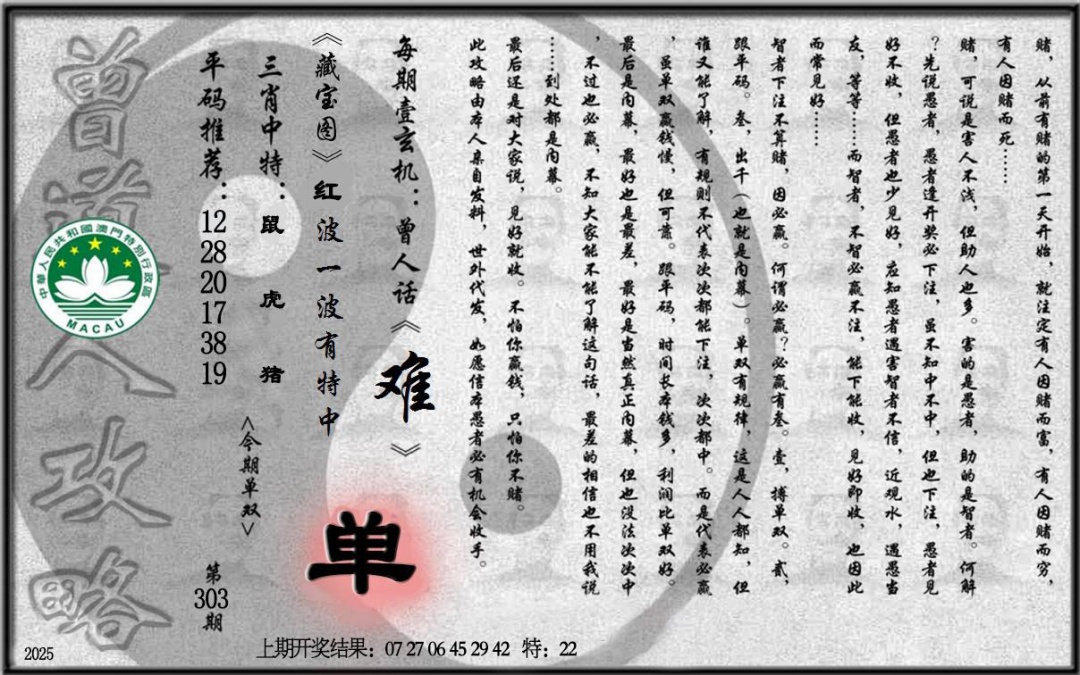 赌，从前有赌的第一天开始，就注定有人因赌而富，有人因赌而穷，
有人因赌而死……
赌，可说是害人不浅，但助人也多。害的是愚者，助的是智者。何解
？先说愚者，愚者逢开奖必下注，虽不知中不中，但也下注，愚者见
好不收，但愚者也少见好，应知愚者遇害智者不信，近观水，遇愚当
友，等等……而智者，不智必赢不注，能下能收，见好即收，也因此
而常见好……
智者下注不算赌，因必赢。何谓必赢？必赢有叁。壹，搏单双。贰，
跟平码。叁，出千（也就是内幕）。单双有规律，这是人人都知，但
谁又能了解，有规则不代表次次都能下注，次次都中。而是代表必赢
，虽单双赢钱慢，但可靠。跟平码，时间长本钱多，利润比单双好。
最后是内幕，最好也是最差，最好是当然真正内幕，但也没法次次中
，不过也必赢，不知大家能不能了解这句话，最差的相信也不用我说
……到处都是内幕。
最后还是对大家说，见好就收。不怕你赢钱，只怕你不赌。
此攻略由本人亲自发料，世外代发，如愿信本愚者必有机会收手。
每期壹玄机：曾人话《难》
《藏宝图》红波一波有特中
单
三肖中特：鼠 虎 猪
〈今期单双〉
平码推荐：12 28 20 17 38 19
第303期
曾道人攻略
中華人民共和國澳門特別行政區
MACAU
2025
上期开奖结果：07 27 06 45 29 42 特：22